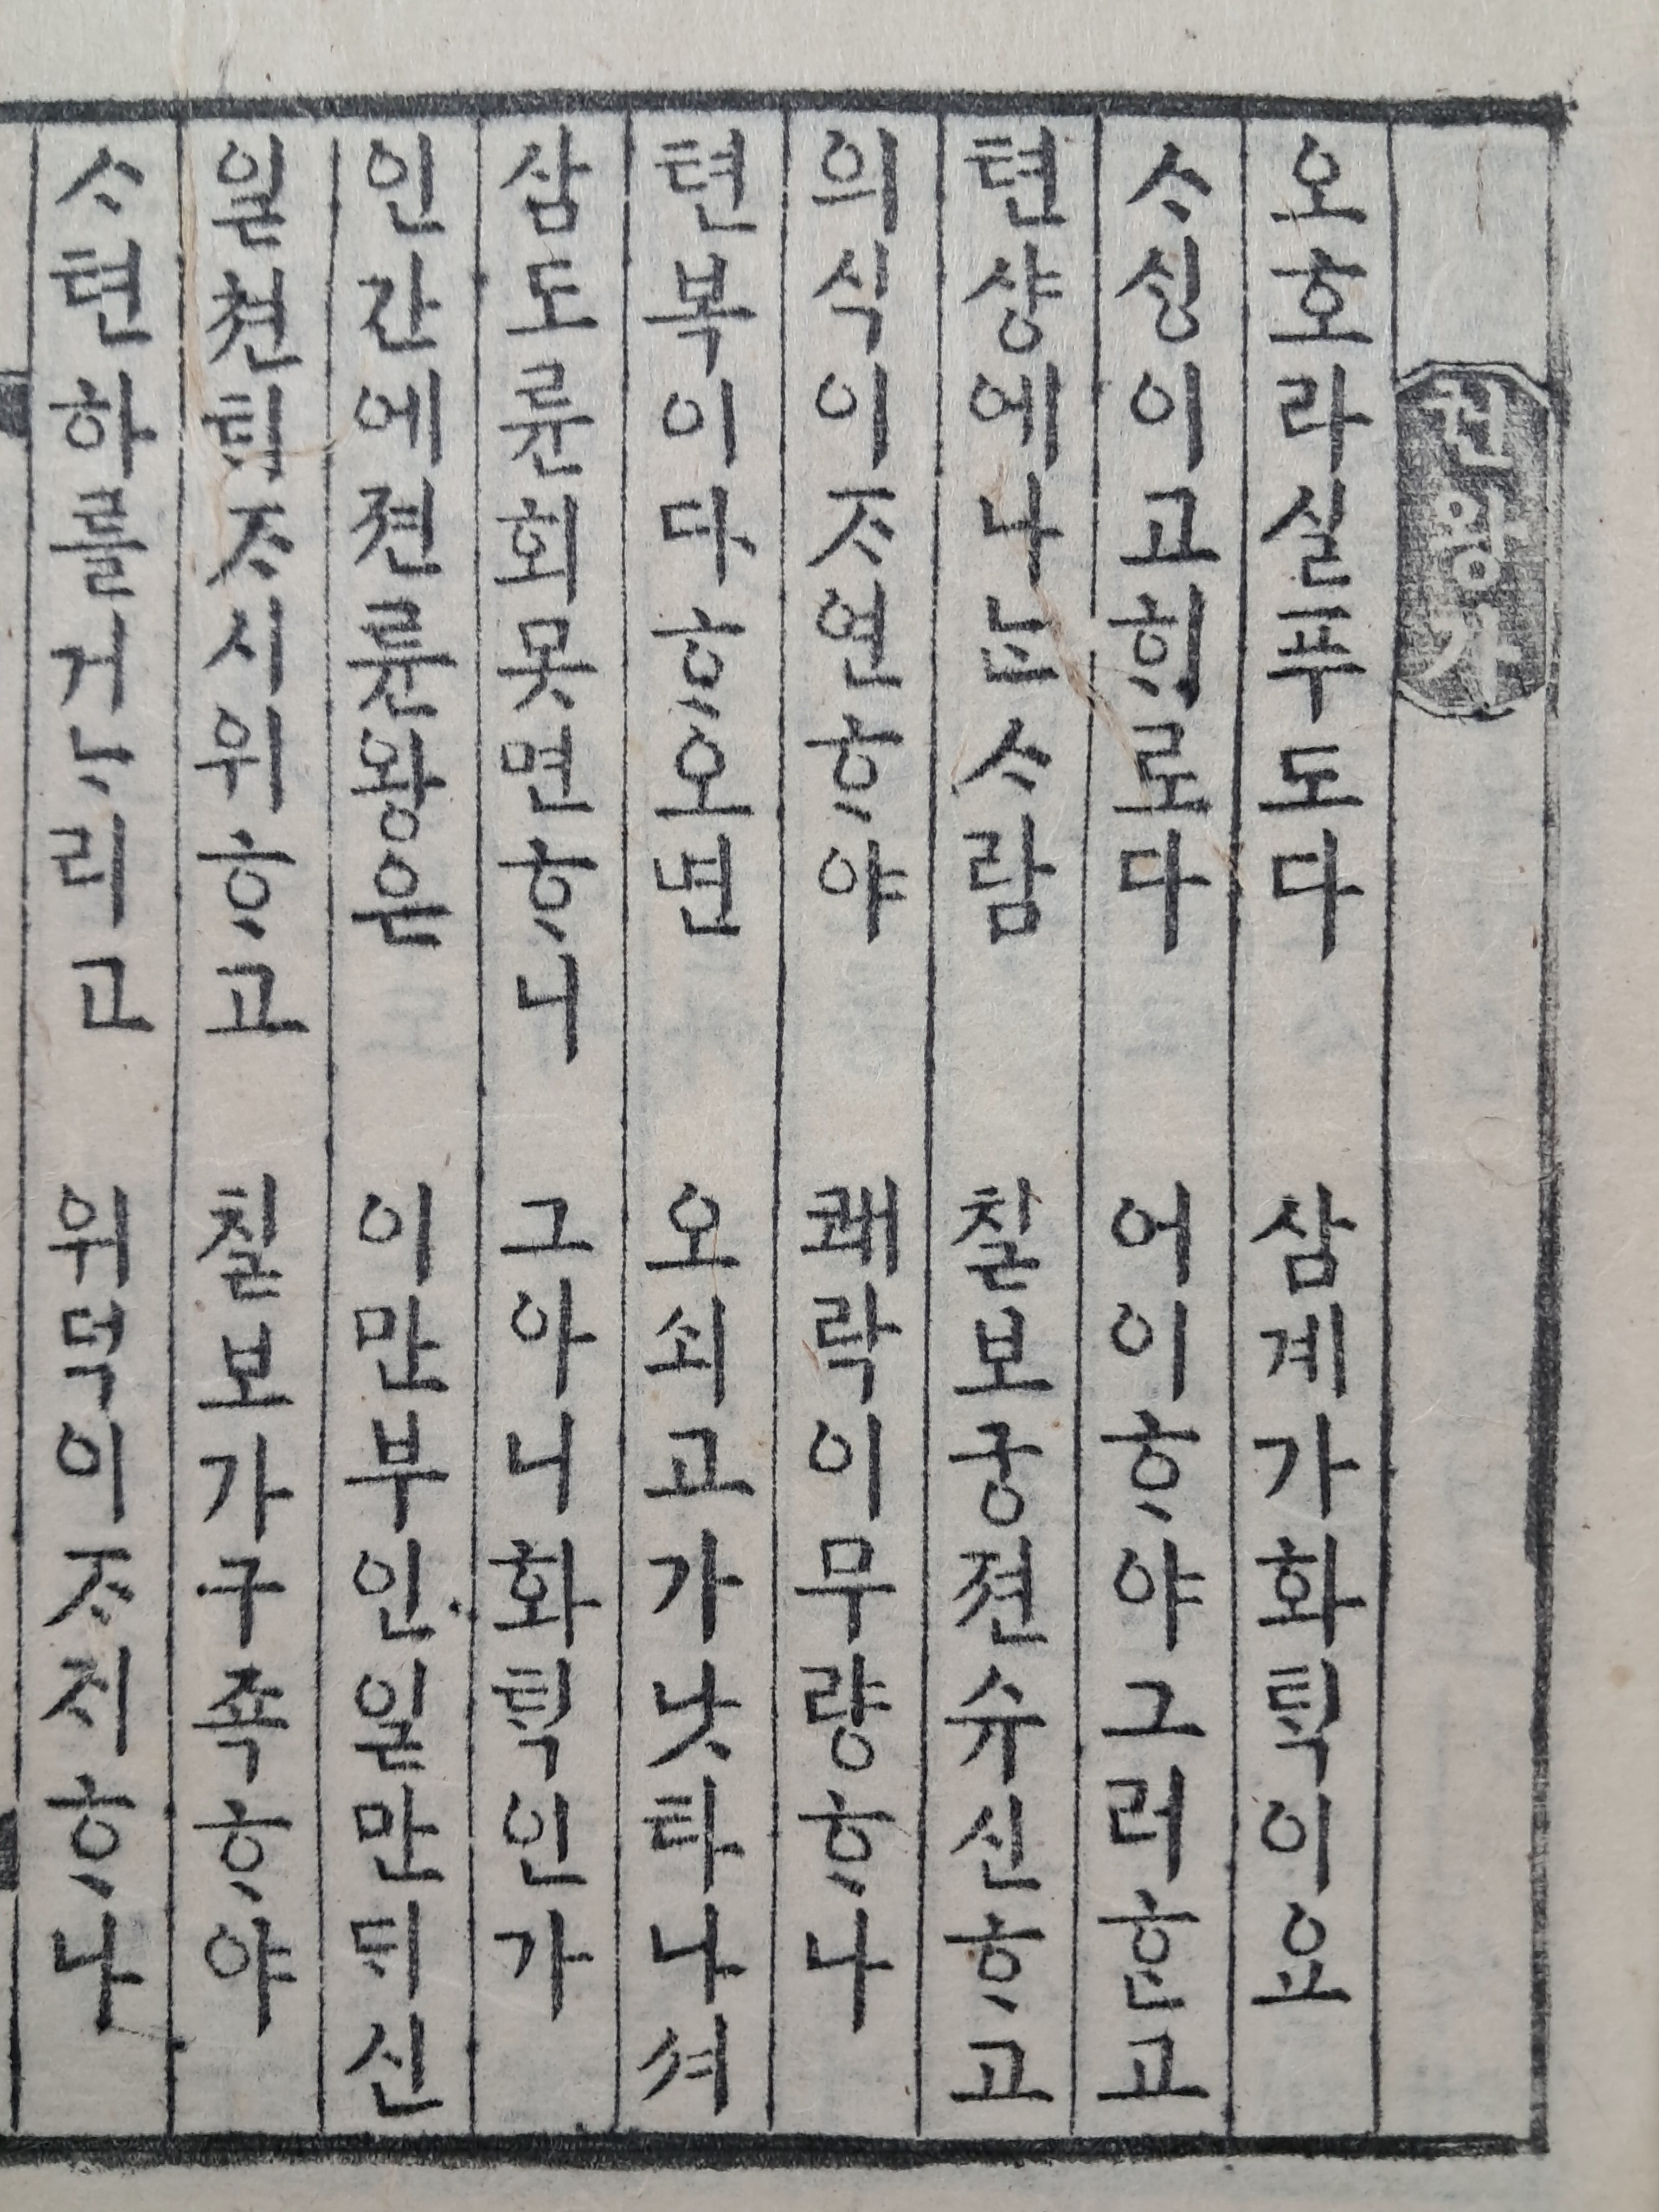 권왕가
오호라실푸도다 삼계가화ᄐᆡᆨ이요
ᄉᆞ싱이고ᄒᆡ로다 어이ᄒᆞ야그러ᄒᆞᆫ고
텬샹에나ᄂᆞᆫᄉᆞ람 칠보궁젼슈신ᄒᆞ고
의식이ᄌᆞ연ᄒᆞ야 쾌락이무량ᄒᆞ나
텬복이다ᄒᆞ오면 오쇠고가낫타나셔
삼도륜회못면ᄒᆞ니 그아니화ᄐᆡᆨ인가
인간에젼륜왕은 이만부인일만ᄃᆡ신
일쳔ᄐᆡᄌᆞ시위ᄒᆞ고 칠보가구죡ᄒᆞ야
ᄉᆞ텬하를거ᄂᆞ리고 위덕이ᄌᆞᄌᆡᄒᆞ나